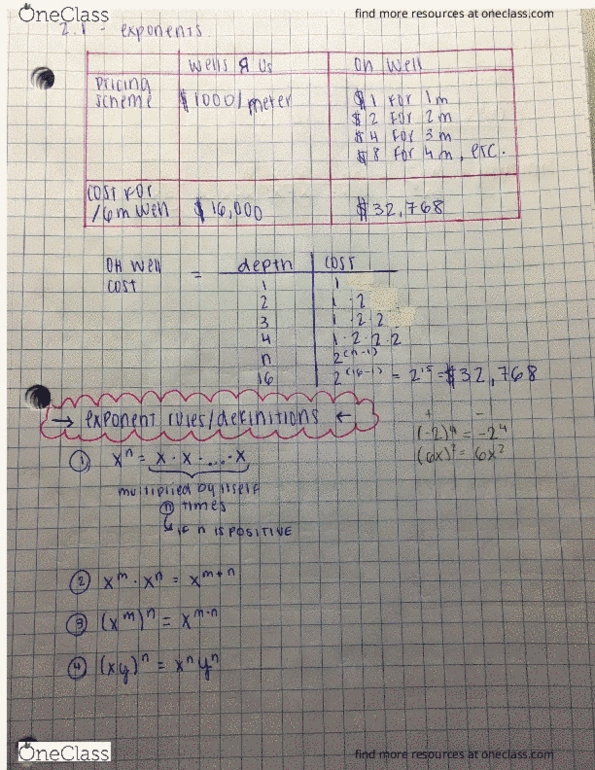 OneClass
find more resources at oneclass.com
2.1 - exponents
Wells Я Us
Oh Well
pricing scheme
$1000/meter
$1 for 1m
$2 for 2m
$4 for 3m
$8 for 4m, etc.
cost for 16m well
$16,000
$32,768
Oh Well cost =
depth
cost
1
1
2
1·2
3
1·2·2
4
1·2·2·2
n
2^(n-1)
16
2^(16-1) = 2^15 = $32,768
→ exponent rules/definitions ←
+ -
(-2)^4 = -2^4
(6x)^2 = 6x^2
① x^n = x·x·...·x
multiplied by itself
n times
if n is POSITIVE
② x^m · x^n = x^m+n
③ (x^m)^n = x^m·n
④ (xy)^n = x^n y^n
OneClass
find more resources at oneclass.com